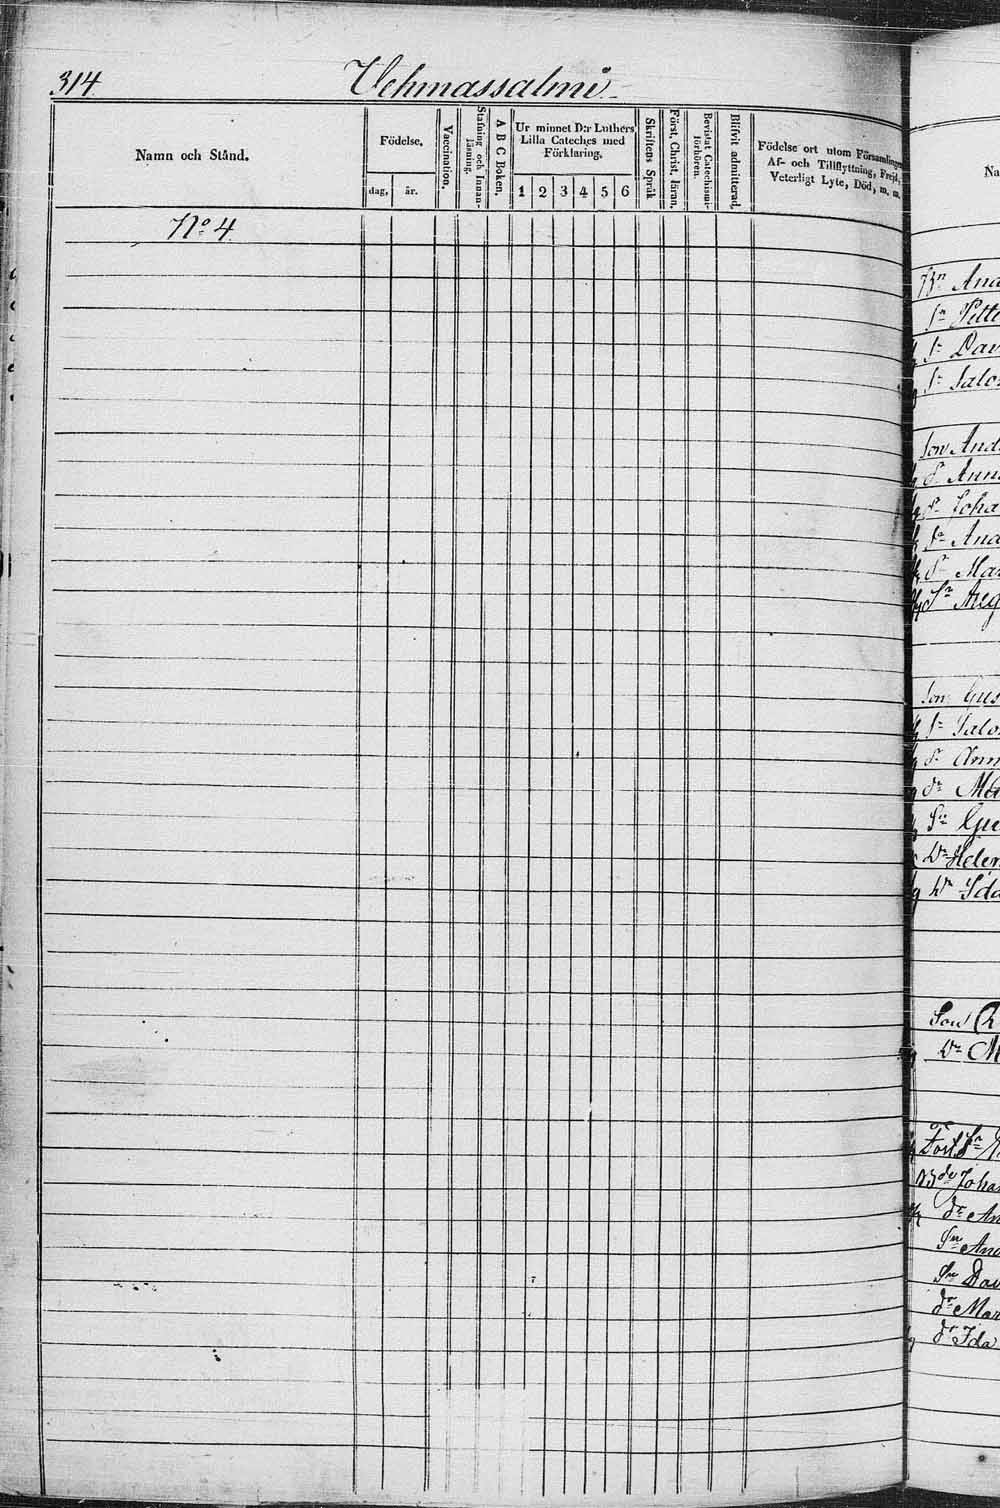 314 Vehmassalmi
Namn och Stånd.
Födelse.
dag. år.
Vaccination.
Stafning och Innan-
läsning.
A B C Boken.
Ur minnet D:r Luthers
Lilla Cateches med
Förklaring.
1 2 3 4 5 6
Skriftens Språk
Först. Christ. läran.
Bevistat Catechismi-
förhören.
Blifvit admitterad.
Födelse ort utom Församlingen
Af- och Tillflyttning, Frejd,
Veterligt Lyte, Död, m. m.
No 4
Na
Sn Pitte
Sn Dav
Sn Salo
Son And
Dr Ann
Sn Joha
Dr Mar
Sn Aug
Son Gus
Sn Salo
Dr Ann
Dr Helen
Dr Ida
Son
Dr M
Johan
Sn And
Sn Dav
Dr Mar
Dr Ida